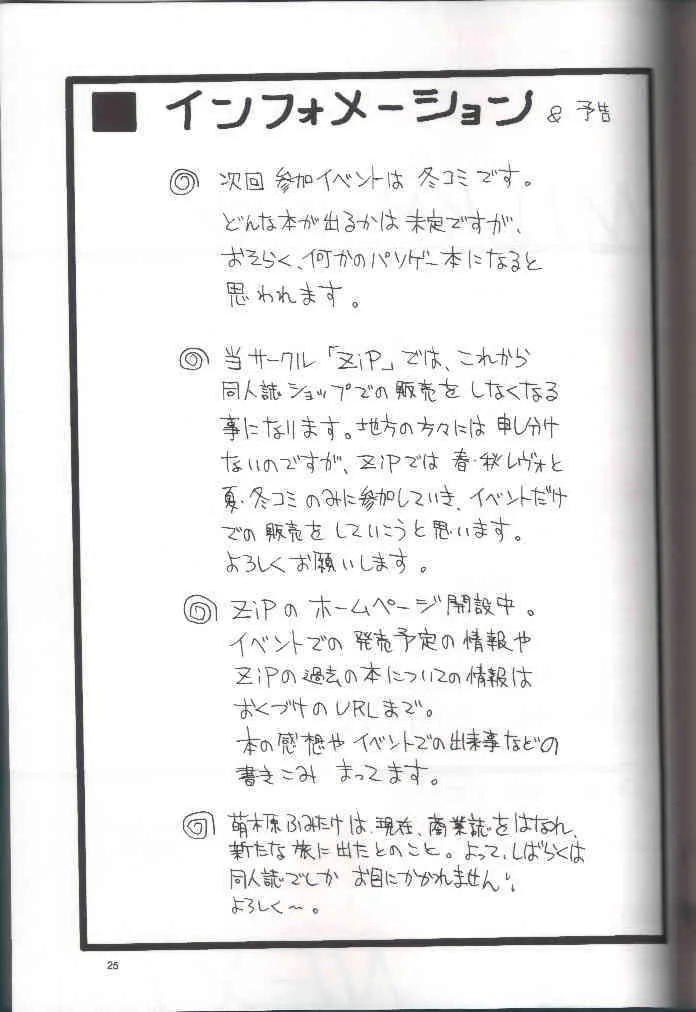 インフォメーション & 予告
次回 参加イベントは 冬コミです。
どんな本が出るかは 未定ですが、
おそらく、何かのパソゲー本になると
思われます。
当サークル「ZiP」では、これから
同人誌ショップでの販売を しなくなる
事になります。地方の方々には 申し分け
ないのですが、ZiPでは 春・秋レヴォと
夏・冬コミのみに参加していき、イベントだけ
での販売を していこうと思います。
よろしくお願いします。
ZiPの ホームページ開設中。
イベントでの 発売予定の情報や
ZiPの過去の本についての情報は
おくづけのURLまで。
本の感想や イベントでの出来事などの
書きこみ まってます。
萌木原ふみたけは、現在、商業誌をはなれ、
新たな旅に出たとのこと。よって、しばらくは
同人誌でしか お目にかかれません!、
よろしく〜。
25